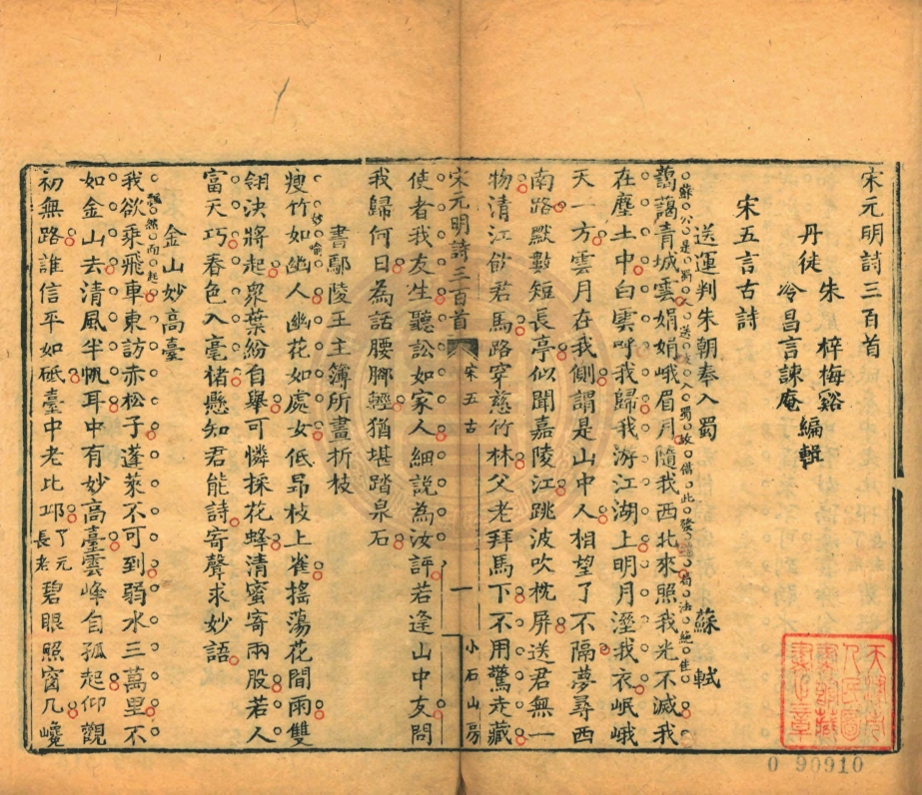 宋元明詩三百首
朱 梓梅谿
丹徒
冷昌言諫庵
編輯
宋五言古詩
送運判朱朝奉入蜀 蘇軾
蘇公是蜀人送友入蜀故借此發
藹藹青城雲娟娟峨眉月隨我西北來照我光不滅我
在塵土中白雲呼我歸我游江湖上明月溼我衣岷峨
天一方雲月在我側謂是山中人相望了不隔夢尋西
南路默數短長亭似聞嘉陵江跳波吹枕屏送君無一
物清江飲君馬路穿慈竹林父老拜馬下不用驚走藏
宋元明詩三百首 宋五古 一 小石山房
使者我友生聽訟如家人細說為汝評若逢山中友問
我歸何日為話腰腳輕猶堪踏泉石
書鄢陵王主簿所畫折枝
妙喻
瘦竹如幽人幽花如處女低昂枝上雀搖蕩花間雨雙
翎決將起衆葉紛自舉可憐採花蜂清蜜寄兩股若人
富天巧春色入毫楮懸知君能詩寄聲求妙語
金山妙高臺
飄然而起
我欲乘飛車東訪赤松子蓬萊不可到弱水三萬里不
如金山去清風半帆耳中有妙高臺雲峰自孤起仰觀
初無路誰信平如砥臺中老比邱了元長老碧眼照窗几巉
0 90910